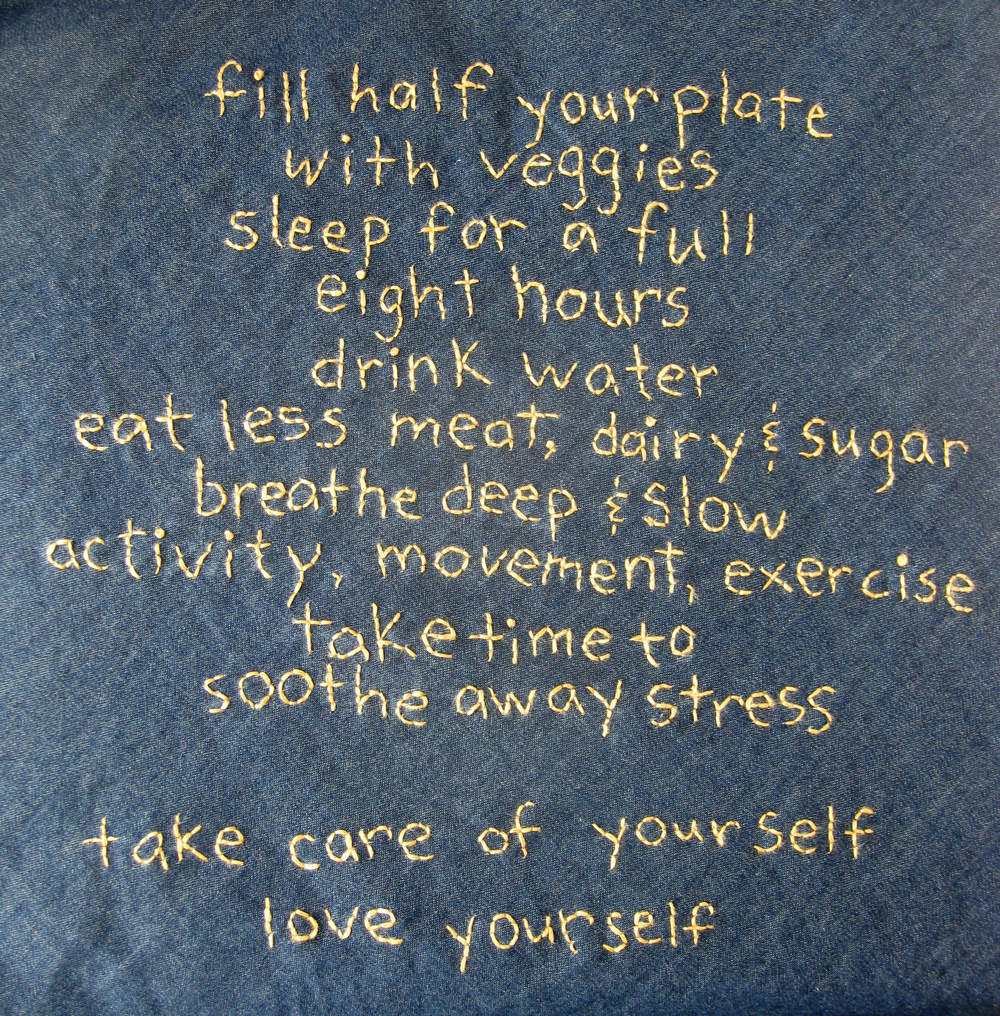 fill half your plate
with veggies
sleep for a full
eight hours
drink water
eat less meat, dairy & sugar
breathe deep & slow
activity, movement, exercise
take time to
soothe away stress
take care of yourself
love yourself